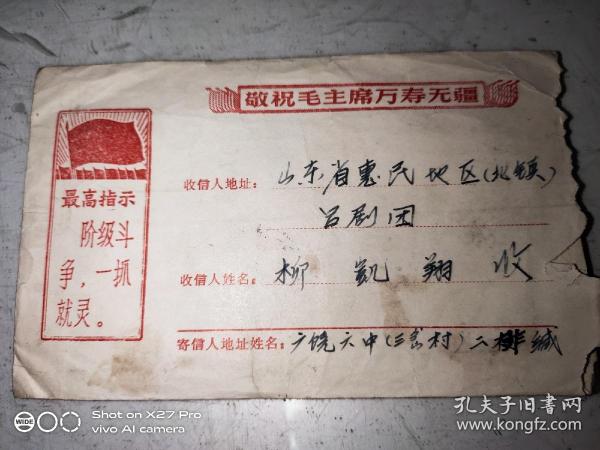 敬祝毛主席万寿无疆
最高指示
阶级斗
争,一抓
就灵。
收信人地址:山东省惠民地区(北镇)
吕剧团
收信人姓名:柳凯翔 收
寄信人地址姓名:广饶六中(三岔村)二排缄
WIDE
Shot on X27 Pro
vivo AI camera
孔夫子旧书网
www.kongfz.com